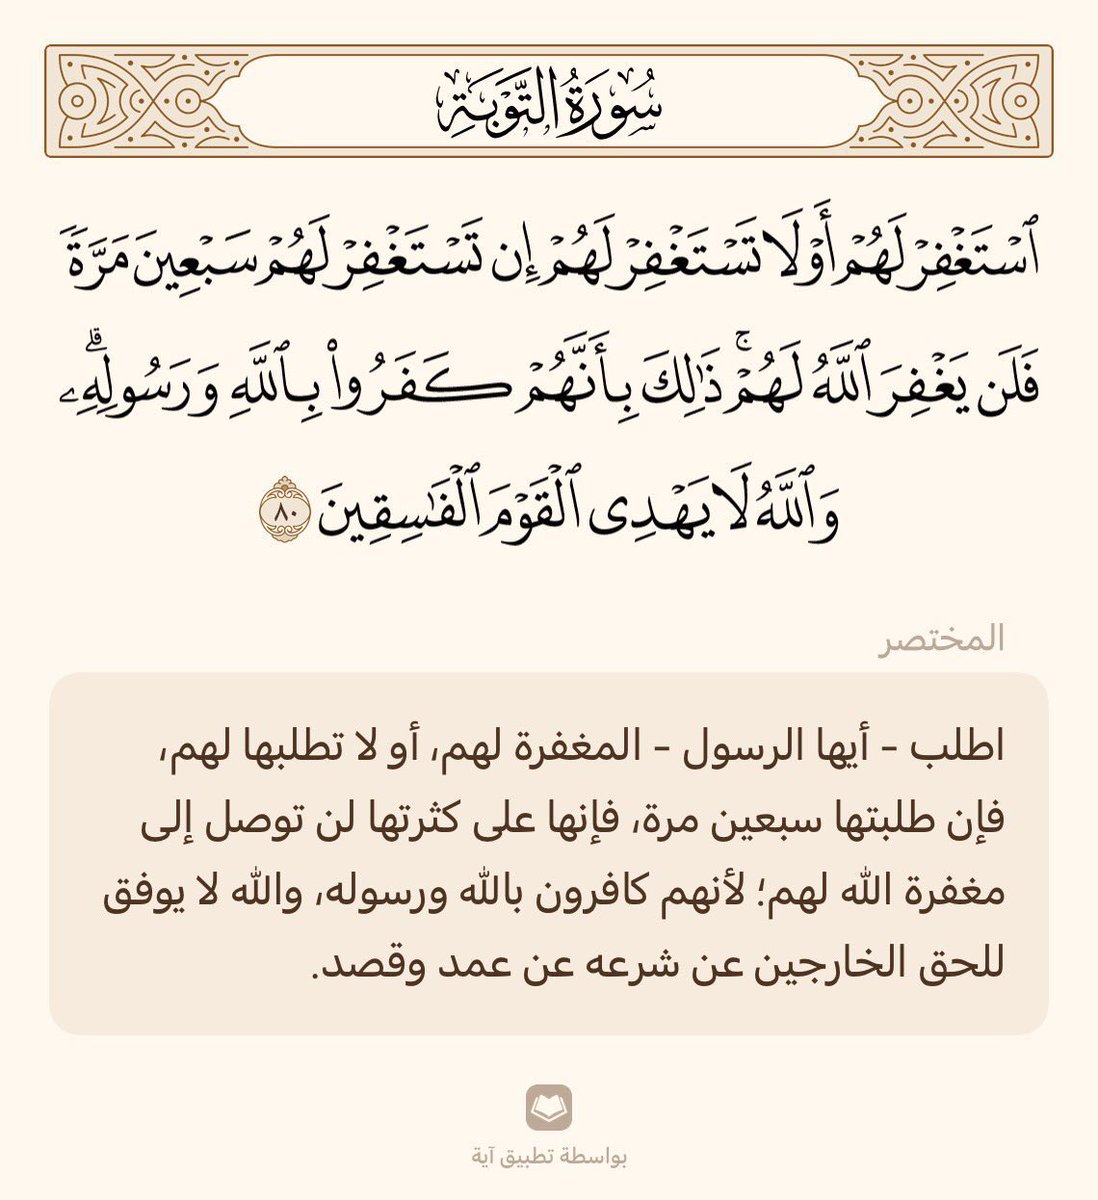 سُورَةُ التَّوۡبَةِ
ٱسۡتَغۡفِرۡ لَهُمۡ أَوۡ لَا تَسۡتَغۡفِرۡ لَهُمۡ إِن تَسۡتَغۡفِرۡ لَهُمۡ سَبۡعِينَ مَرَّةٗ
فَلَن يَغۡفِرَ ٱللَّهُ لَهُمۡۚ ذَٰلِكَ بِأَنَّهُمۡ كَفَرُواْ بِٱللَّهِ وَرَسُولِهِۦۗ
وَٱللَّهُ لَا يَهۡدِي ٱلۡقَوۡمَ ٱلۡفَٰسِقِينَ ٨٠
المختصر
اطلب - أيها الرسول - المغفرة لهم، أو لا تطلبها لهم،
فإن طلبتها سبعين مرة، فإنها على كثرتها لن توصل إلى
مغفرة الله لهم؛ لأنهم كافرون بالله ورسوله، والله لا يوفق
للحق الخارجين عن شرعه عن عمد وقصد.
بواسطة تطبيق آية